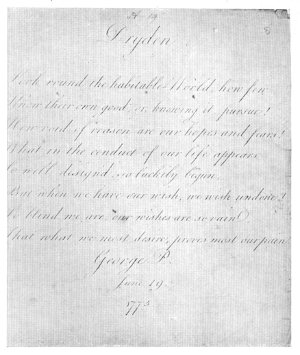 Dryden
Look round the habitable World, how few
Know their own good, or, knowing it pursue!
How void of reason are our hopes and fears!
What in the conduct of our life appears
So well design'd, so luckily begun,
But when we have our wish, we wish undone!
So blend we are, our wishes are so vain
That what we most desire, proves most our pain
George P.
June 19
1775